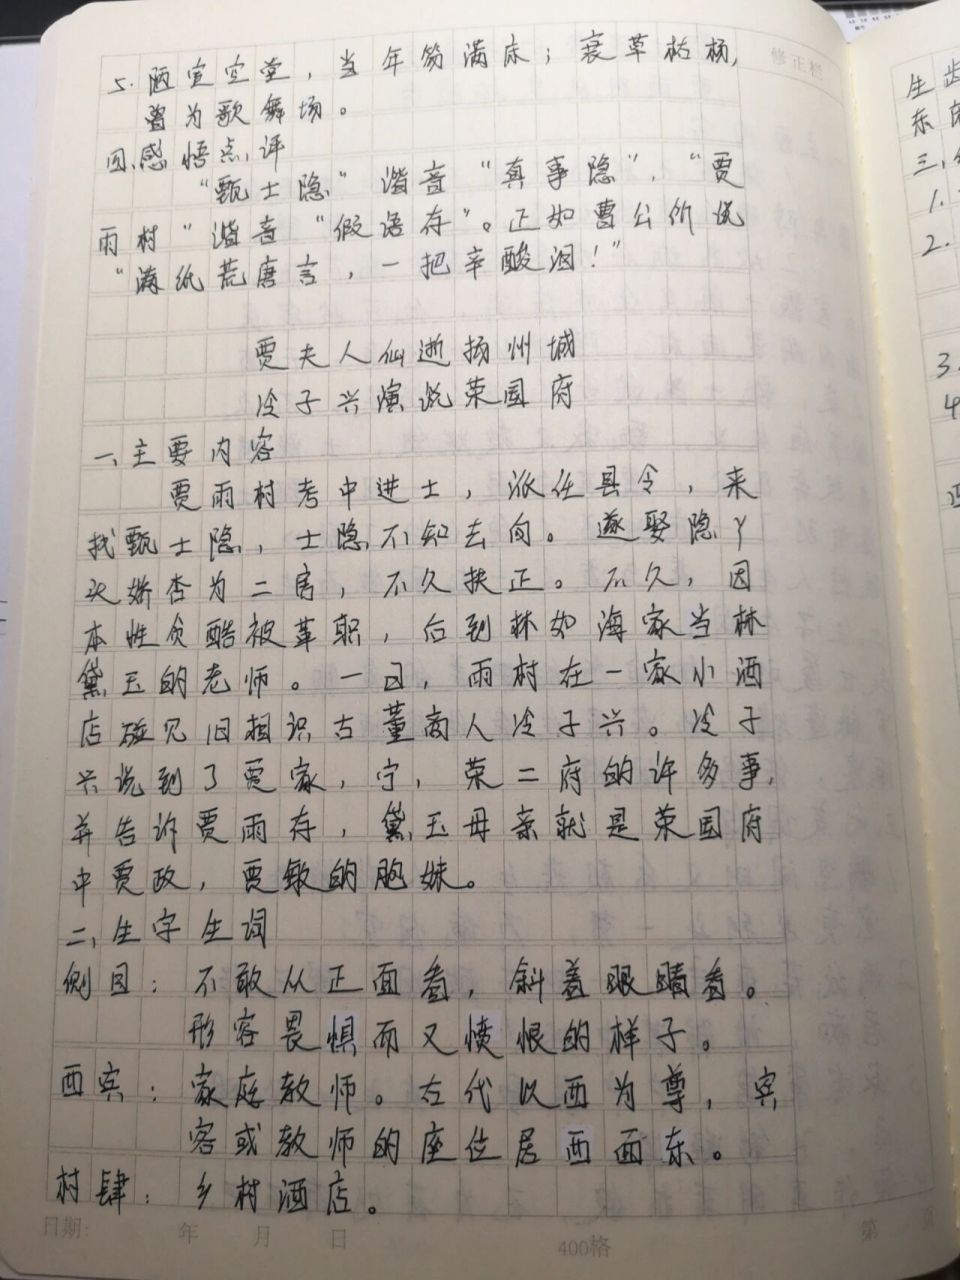 5.陋室空堂，当年笏满床；衰草枯杨，
曾为歌舞场。
四、感悟点评
“甄士隐”谐音“真事隐”，“贾
雨村”谐音“假语存”。正如曹公所说
“满纸荒唐言，一把辛酸泪！”
贾夫人仙逝扬州城
冷子兴演说荣国府
一、主要内容
贾雨村考中进士，派任县令，来
找甄士隐，士隐不知去向。遂娶隐丫
头娇杏为二房，不久扶正。不久，因
本性贪酷被革职，后到林如海家当林
黛玉的老师。一日，雨村在一家小酒
店碰见旧相识古董商人冷子兴。冷子
兴说到了贾家，宁，荣二府的许多事，
并告诉贾雨存，黛玉母亲就是荣国府
中贾政，贾敏的胞妹。
二、生字生词
侧目：不敢从正面看，斜着眼睛看。
形容畏惧而又愤恨的样子。
西宾：家庭教师。古代以西为尊，宾
客或教师的座位居西面东。
村肆：乡村酒店。
修正栏
日期： 年 月 日
400格
第 页
生
东
三、
1.
2.
3.
4